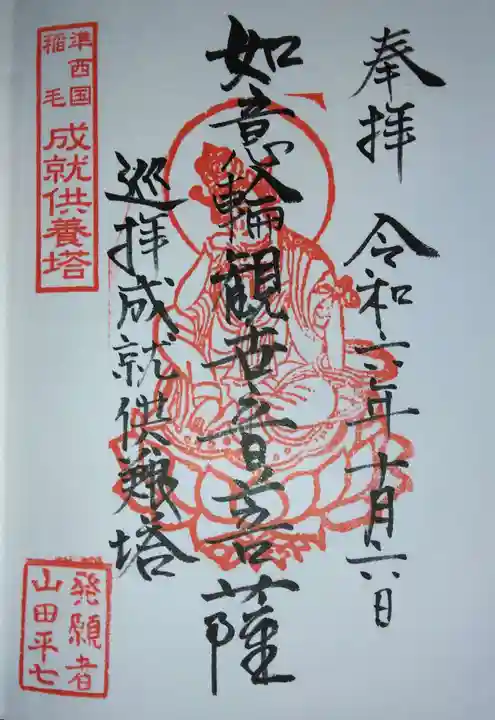 奉拝 令和六年十月六日
如意輪観世音菩薩
巡拝成就供養塔
準西国
稲毛
成就供養塔
発願者
山田平七